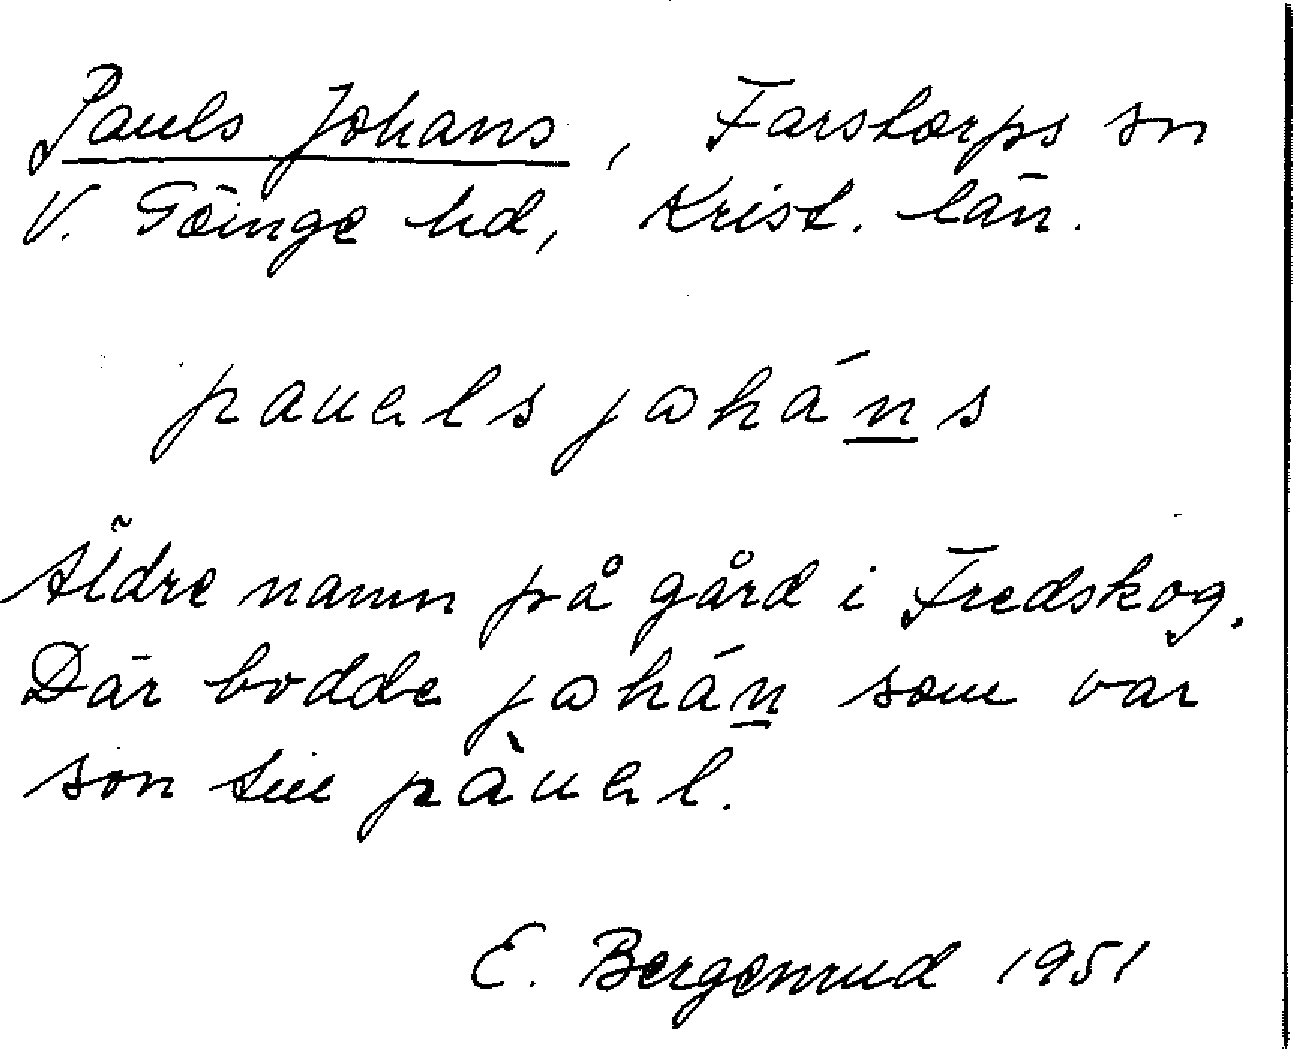 Pauls Johans, Farstorps sn
V. Göinge hd, Krist. län.
pauals joháns
Äldre namn på gård i Fredskog.
Där bodde johán som var
son till pàual.
E. Bergenrud 1951